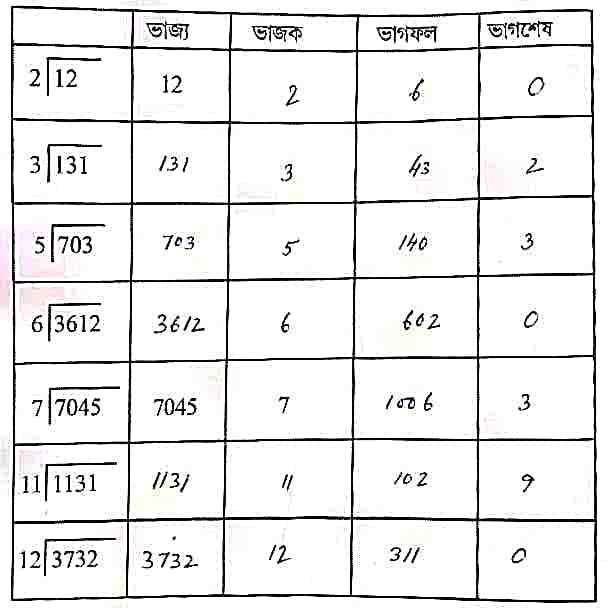 ভাজ্য ভাজক ভাগফল ভাগশেষ
2 12 12 2 6 0
3 131 131 3 43 2
5 703 703 5 140 3
6 3612 3612 6 602 0
7 7045 7045 7 1006 3
11 1131 1131 11 102 9
12 3732 3732 12 311 0